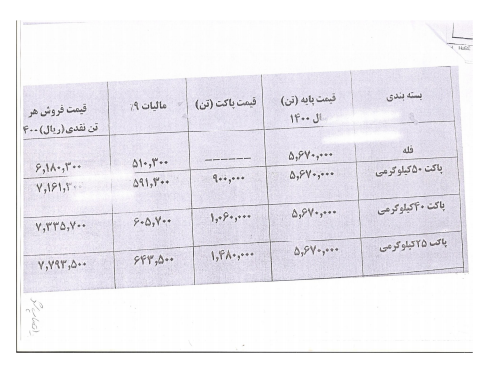 بسته بندی قیمت پایه (تن) ال ۱۴۰۰ قیمت پاکت (تن) مالیات ۹٪ قیمت فروش هر تن نقدی (ریال)
فله ۵,۶۷۰,۰۰۰ ------ ۵۱۰,۳۰۰ ۶,۱۸۰,۳۰۰
پاکت ۵۰کیلوگرمی ۵,۶۷۰,۰۰۰ ۹۰۰,۰۰۰ ۵۹۱,۳۰۰ ۷,۱۶۱,۳۰۰
پاکت ۴۰کیلوگرمی ۵,۶۷۰,۰۰۰ ۱,۰۶۰,۰۰۰ ۶۰۵,۷۰۰ ۷,۳۳۵,۷۰۰
پاکت ۲۵کیلوگرمی ۵,۶۷۰,۰۰۰ ۱,۴۸۰,۰۰۰ ۶۴۳,۵۰۰ ۷,۷۹۳,۵۰۰